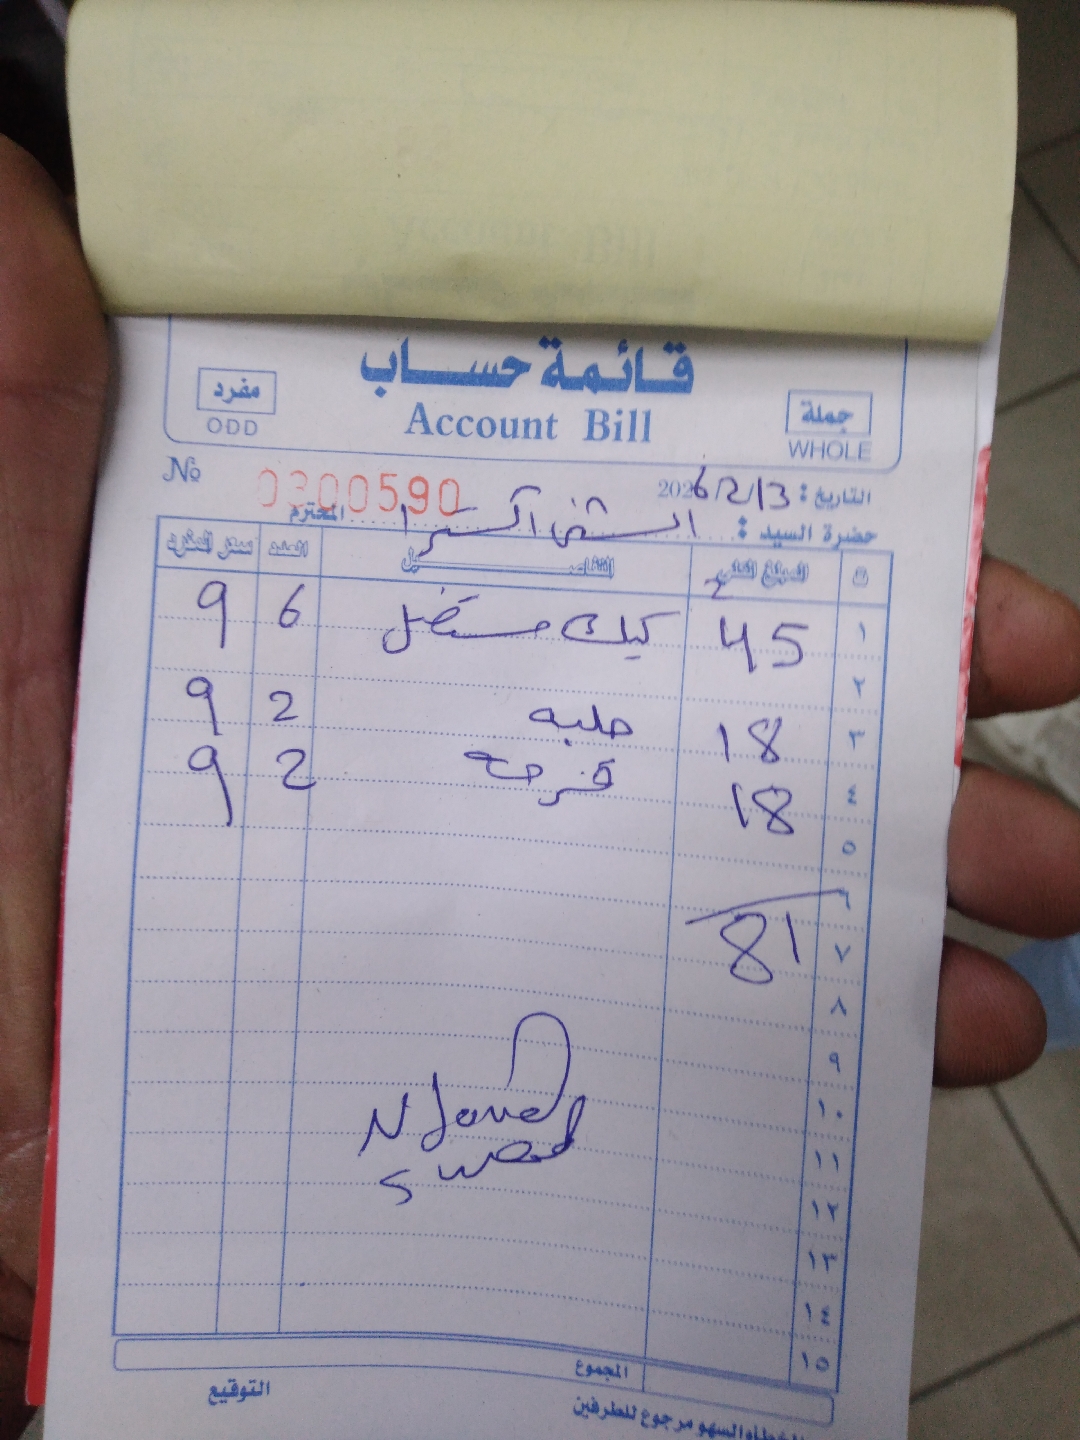 قائمة حساب
Account Bill
جملة
WHOLE
مفرد
ODD
№ 0300590
التاريخ : 2026/2/13
حضرة السيد : المحترم
ت المبلغ الكلي التفاصيل العدد سعر المفرد
١ 45 كيك 6 9
٢
٣ 18 حلبه 2 9
٤ 18 قرحه 2 9
٥
٦
٧ 81
٨
٩
١٠
١١
١٢
١٣
١٤
١٥
المجموع
التوقيع
الخطأ والسهو مرجوع للطرفين